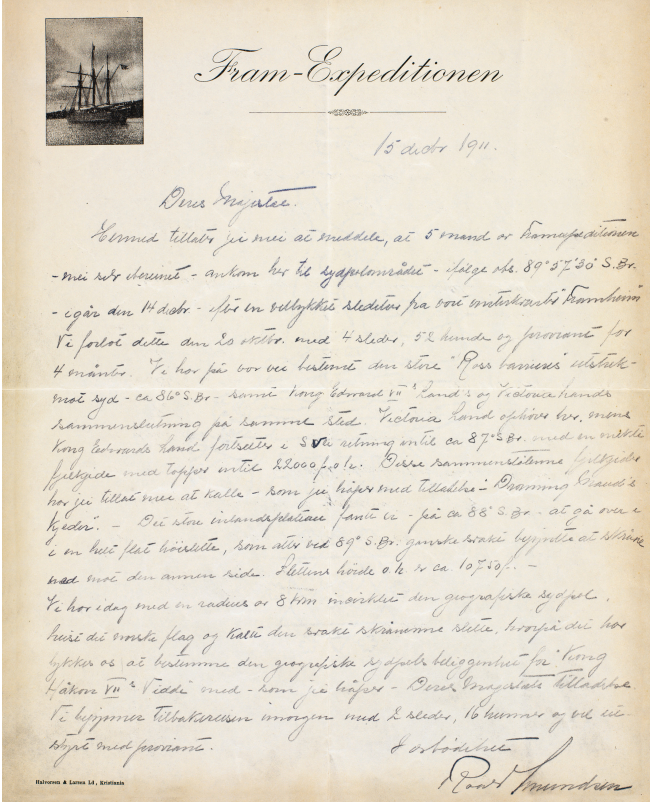 Fram-Expeditionen
15 decbr 1911.
Deres Majestæt.
Hermed tillater jeg mei at meddele, at 5 mand av Framexpeditionen
- mei selv iberegnet - ankom her til sydpolområdet - ifølge obs. 89° 57' 30" S. Br.
- igår den 14 decbr. - efter en velbykket sledetur fra vort vinterkvarter "Framheim"
Vi forlot dette den 20 oktbr. med 4 sleder, 52 hunde og proviant for
4 månter. Vi har på vor vei bestemt den store "Ross barrieres" utstrek-
mot syd - ca 86° S. Br - samt Kong Edward VII's Land's og Victoria Lands
sammenslutning på samme sted. Victoria Land ophører her, mens
Kong Edwards Land fortsetter i retning intil ca 87° S. Br. med en
fjelkjede med topper intil 22000 f. o. h. Disse fjelkjeder
har jeg tillat mei at kalle - som jeg håper med tilladelse - "Dronning Maud's
kjeder". - Det store inlandsplateau fant vi - på ca 88° S. Br. - at gå over i
i en helt flat høislette, som atter ved 89° S. Br. ganske svakt begyndte at skråne
ned mot den annen side. Slettens høide o. h. er ca. 10750 f. -
Vi har idag med en radius av 8 km incirklet den geografiske sydpol,
heist det norske flag og kalt den svakt skrånenne slette, hvorpå det har
lykkes os at bestemme den geografiske sydpols beliggenhet for "Kong
Håkon VII's Vidde" med - som jeg håper - Deres Majestæts tilladelse.
Vi begynner tilbakereisen imorgen med 2 sleder, 16 hunner og vel ut-
styrt med proviant.
I ærbødighet
Roald Amundsen
Halvorsen & Larsen Ld, Kristiania